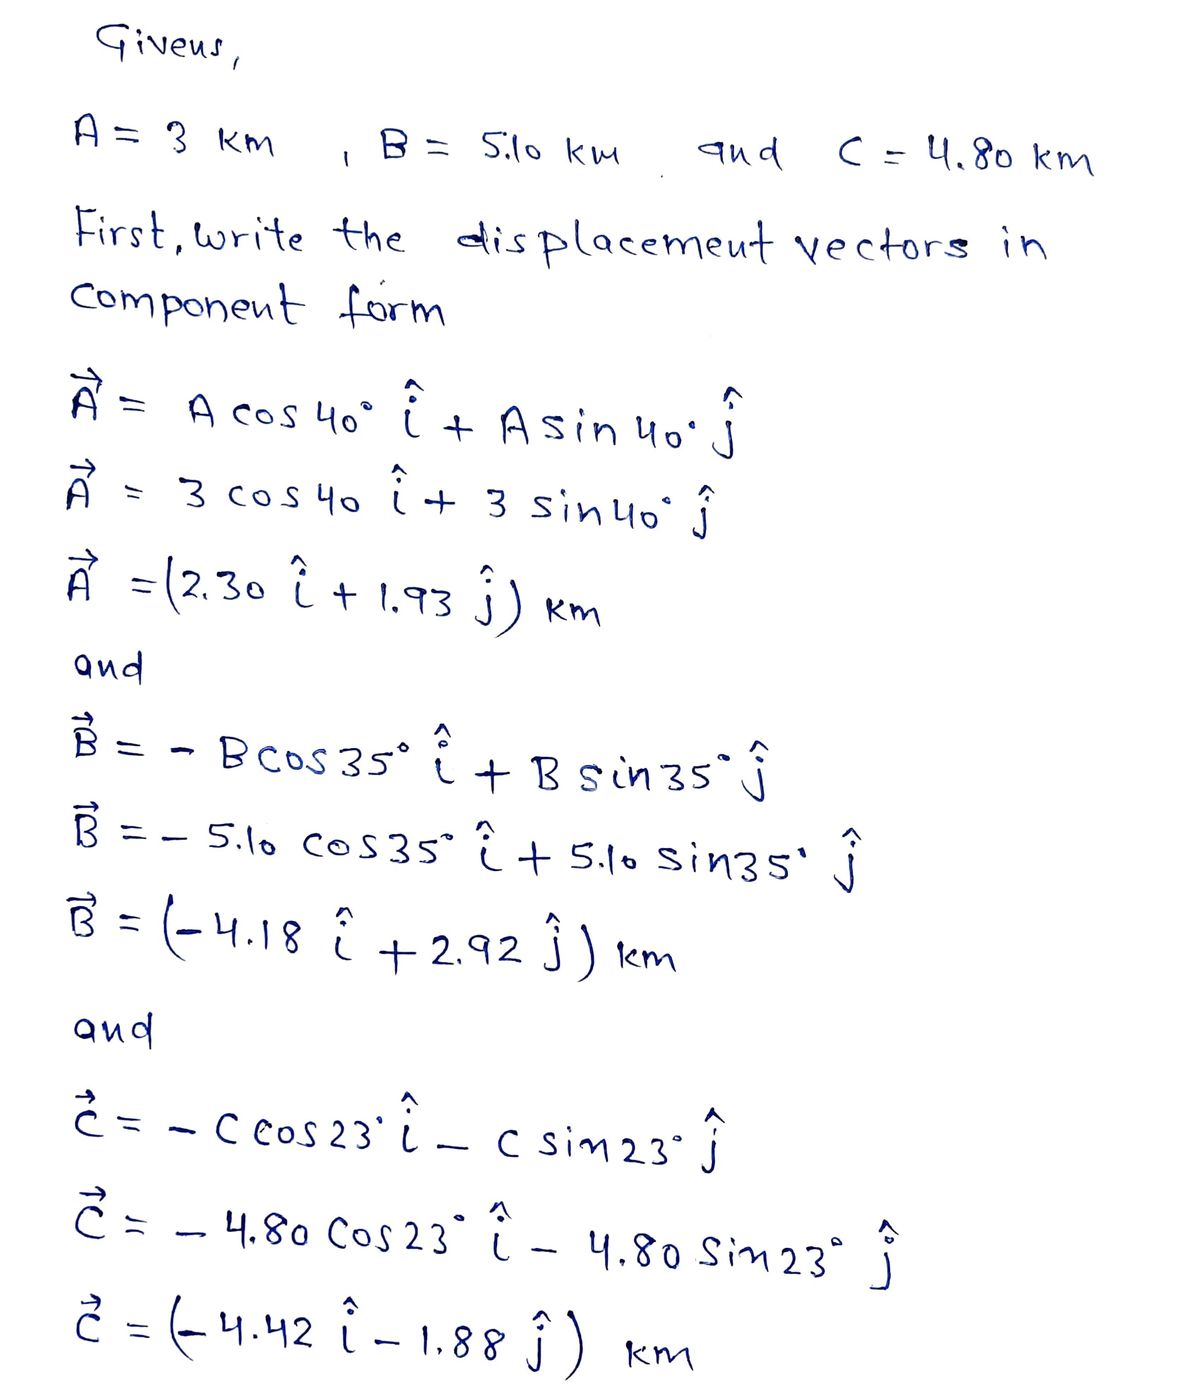 Givens,
A = 3 km , B = 5.10 km and C = 4.80 km
First, write the displacement vectors in
component form
A⃗ = A cos 40° î + A sin 40° ĵ
A⃗ = 3 cos 40 î + 3 sin 40° ĵ
A⃗ = (2.30 î + 1.93 ĵ) km
and
B⃗ = - B cos 35° î + B sin 35° ĵ
B⃗ = - 5.10 cos 35° î + 5.10 sin 35° ĵ
B⃗ = (-4.18 î + 2.92 ĵ) km
and
C⃗ = - C cos 23° î - C sin 23° ĵ
C⃗ = - 4.80 cos 23° î - 4.80 sin 23° ĵ
C⃗ = (-4.42 î - 1.88 ĵ) km